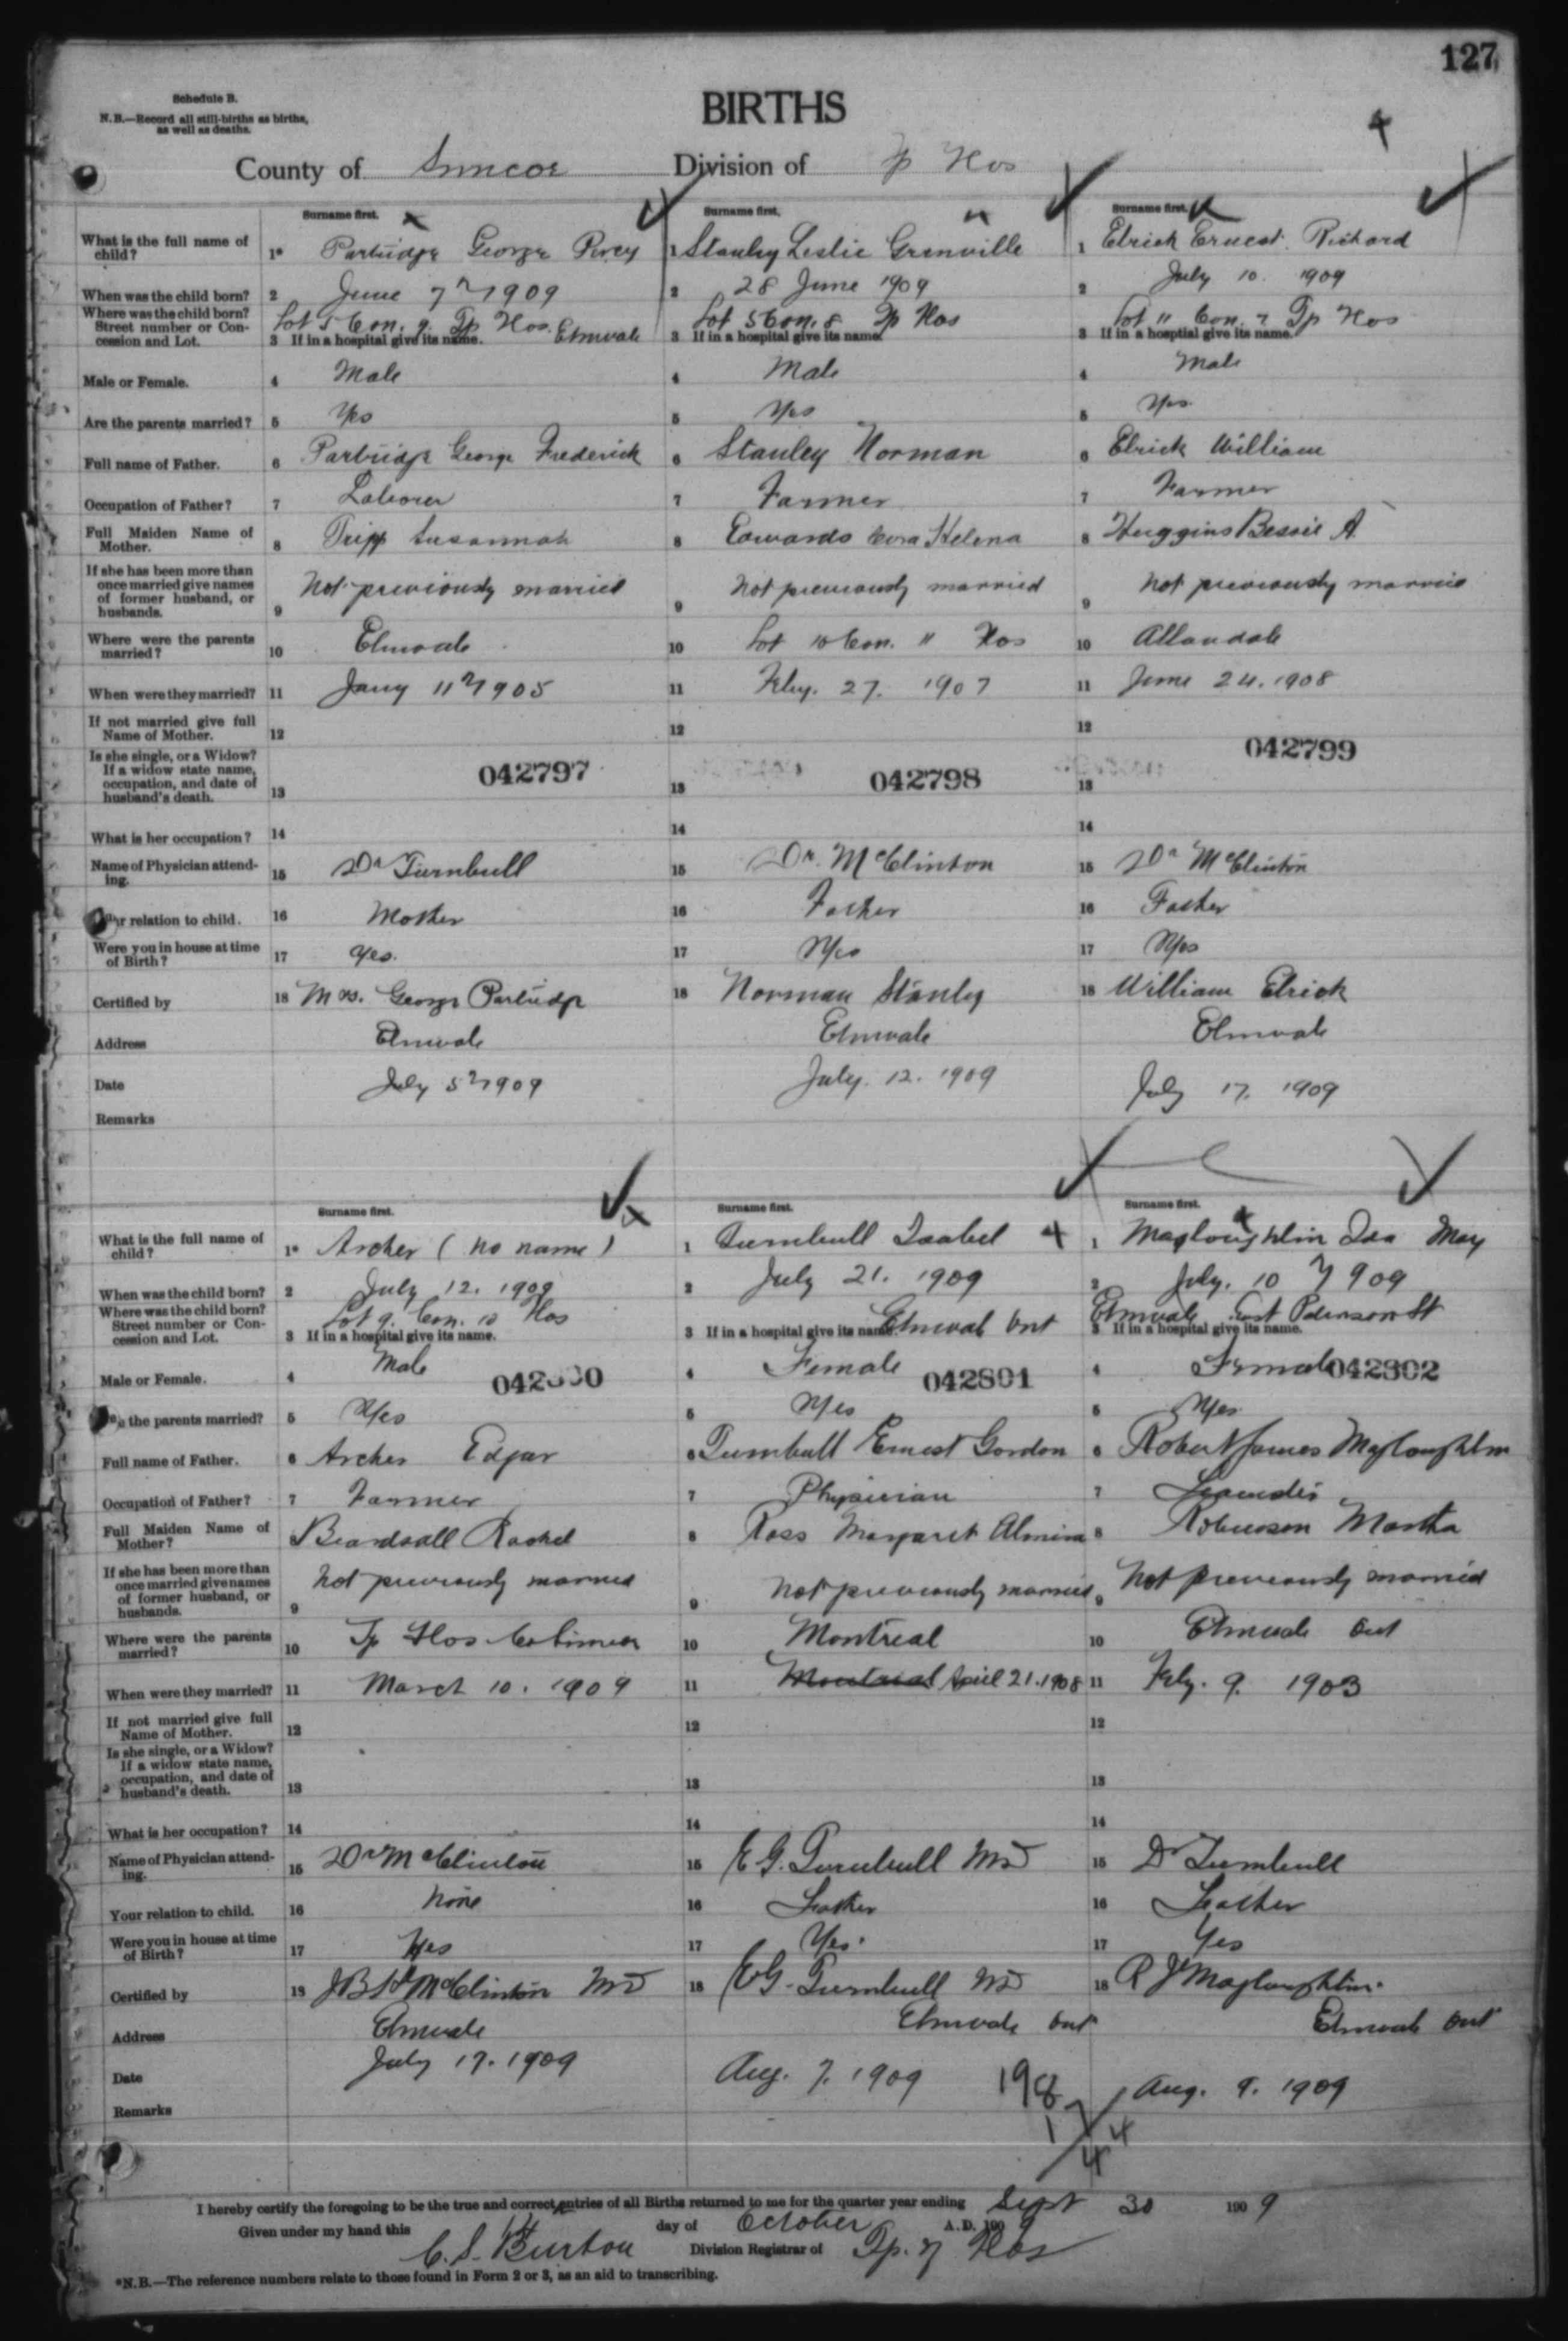 127
Schedule B.
N.B.—Record all still-births as births,
as well as deaths.
BIRTHS
County of Simcoe Division of Tp Flos
Surname first. Surname first. Surname first.
What is the full name of child? 1* Partridge George Percy 1 Stanley Leslie Grenville 1 Elrick Ernest Richard
When was the child born? 2 June 7th 1909 2 28 June 1909 2 July 10. 1909
Where was the child born? Street number or Concession and Lot. Lot 5 Con. 9. Tp Flos. Elmvale Lot 5 Con. 8 Tp Flos Lot 11 Con. 7 Tp Flos
3 If in a hospital give its name. 3 If in a hospital give its name. 3 If in a hosptial give its name.
Male or Female. 4 Male 4 Male 4 Male
Are the parents married? 5 Yes 5 Yes 5 Yes
Full name of Father. 6 Partridge George Frederick 6 Stanley Norman 6 Elrick William
Occupation of Father? 7 Laborer 7 Farmer 7 Farmer
Full Maiden Name of Mother. 8 Tripp Susannah 8 Edwards Cora Helena 8 Huggins Bessie A
If she has been more than once married give names of former husband, or husbands. 9 Not previously married 9 Not previously married 9 Not previously married
Where were the parents married? 10 Elmvale 10 Lot 10 Con. 11 Flos 10 Allandale
When were they married? 11 Jany 11th 1905 11 Feby. 27. 1907 11 June 24. 1908
If not married give full Name of Mother. 12 12 12
Is she single, or a Widow? If a widow state name, occupation, and date of husband's death. 13 042797 13 042798 13 042799
What is her occupation? 14 14 14
Name of Physician attending. 15 Dr Turnbull 15 Dr. McClinton 15 Dr McClinton
Your relation to child. 16 Mother 16 Father 16 Father
Were you in house at time of Birth? 17 Yes. 17 Yes 17 Yes
Certified by 18 Mrs. George Partridge 18 Norman Stanley 18 William Elrick
Address Elmvale Elmvale Elmvale
Date July 5th 1909 July. 12. 1909 July 17. 1909
Remarks
Surname first. Surname first. Surname first.
What is the full name of child? 1* Archer (no name) 1 Turnbull Isabel 1 Magloughlin Ida May
When was the child born? 2 July 12. 1909 2 July 21. 1909 2 July. 10 1909
Where was the child born? Street number or Concession and Lot. Lot 9. Con. 10 Flos Elmvale Ont Elmvale East St
3 If in a hospital give its name. 3 If in a hospital give its name. 3 If in a hospital give its name.
Male or Female. 4 Male 042800 4 Female 042801 4 Female 042802
Are the parents married? 5 Yes 5 Yes 5 Yes
Full name of Father. 6 Archer Edgar 6 Turnbull Ernest Gordon 6 Robert James Magloughlin
Occupation of Father? 7 Farmer 7 Physician 7
Full Maiden Name of Mother? 8 Beardsall Rachel 8 Ross Margaret Almira 8 Robinson Martha
If she has been more than once married give names of former husband, or husbands. 9 Not previously married 9 Not previously married 9 Not previously married
Where were the parents married? 10 Tp Flos Co Simcoe 10 Montreal 10 Elmvale Ont
When were they married? 11 March 10. 1909 11 Montreal April 21. 1908 11 Feby. 9. 1903
If not married give full Name of Mother. 12 12 12
Is she single, or a Widow? If a widow state name, occupation, and date of husband's death. 13 13 13
What is her occupation? 14 14 14
Name of Physician attending. 15 Dr McClinton 15 E G. Turnbull MD 15 Dr Turnbull
Your relation to child. 16 None 16 Father 16 Father
Were you in house at time of Birth? 17 Yes 17 Yes. 17 Yes
Certified by 18 McClinton MD 18 E G. Turnbull MD 18 R J Magloughlin.
Address Elmvale Elmvale Ont Elmvale Ont
Date July 17. 1909 Aug. 7. 1909 Aug. 9. 1909
Remarks 198
1 / 44
I hereby certify the foregoing to be the true and correct entries of all Births returned to me for the quarter year ending Sept 30 1909
Given under my hand this day of October A.D. 1909
C. S. Burton Division Registrar of Tp. of Flos
*N.B.—The reference numbers relate to those found in Form 2 or 3, as an aid to transcribing.